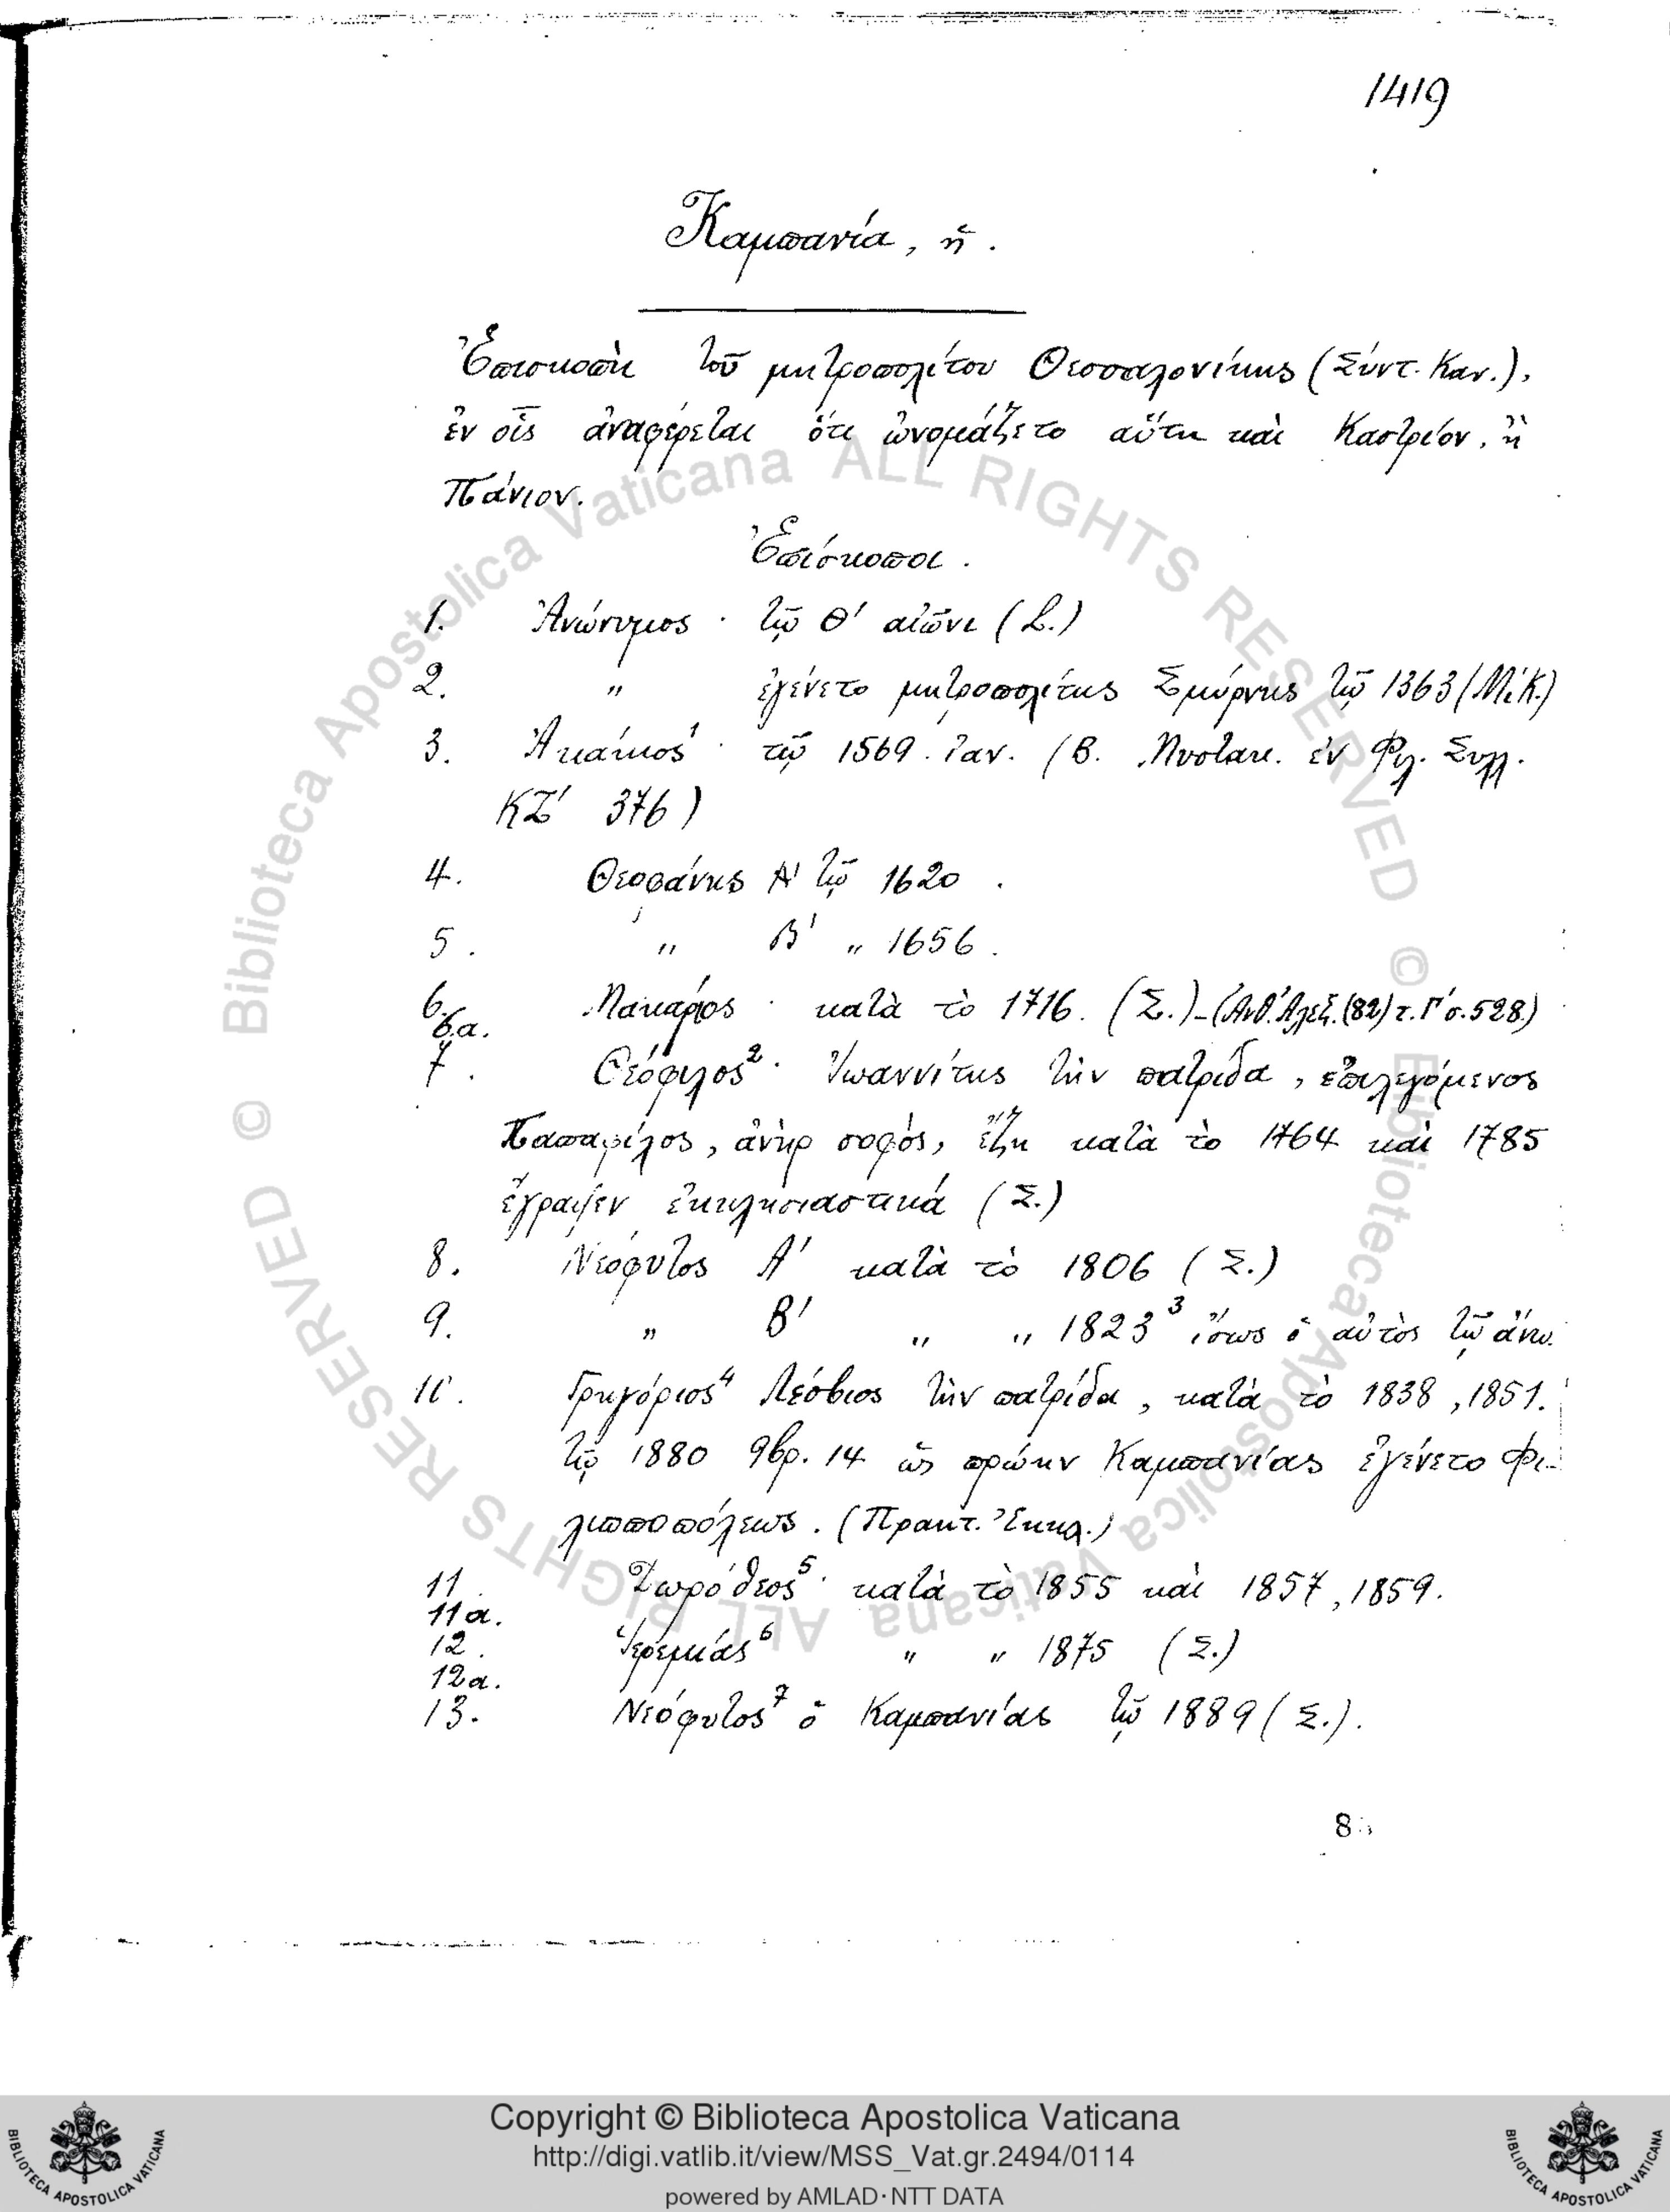 1419
Καμπανία, ἡ.
Ἐπισκοπὴ τοῦ μητροπολίτου Θεσσαλονίκης (Σύντ. Καν.),
ἐν οἷς ἀναφέρεται ὅτι ὠνομάζετο αὕτη καὶ Καστρίον, ἢ
Πάνιον.
Ἐπίσκοποι.
1. Ἀνώνυμος · τῷ Θ' αἰῶνι (L.)
2. " ἐγένετο μητροπολίτης Σμύρνης τῷ 1363 (Μ.Κ.)
3. Ἀκάκιος¹ · τῷ 1569. Ἰαν. (Β. Μυστακ. ἐν Φιλ. Συλλ.
ΚΖ' 376)
4. Θεοφάνης Α' τῷ 1620.
5. " Β' " 1656.
6. Μακάριος · κατὰ τὸ 1716. (Σ.)-(Ἀνθ. Ἀλεξ. (82) τ. Γ' σ. 528.)
6.α.
7. Θεόφιλος² · Ἰωαννίτης τὴν πατρίδα, ἐπιλεγόμενος
Παπαφίλος, ἀνὴρ σοφός, ἔζη κατὰ τὸ 1764 καὶ 1785
ἔγραψεν ἐκκλησιαστικά (Σ.)
8. Νεόφυτος Α' κατὰ τὸ 1806 (Σ.)
9. " Β' " " 1823³ ἴσως ὁ αὐτὸς τῷ ἄνω.
10. Γρηγόριος⁴ Λέσβιος τὴν πατρίδα, κατὰ τὸ 1838, 1851.
τῷ 1880 9βρ. 14 ὡς πρώην Καμπανίας ἐγένετο Φι-
λιππουπόλεως. (Πρακτ. Ἐκκλ.)
11. Δωρόθεος⁵ · κατὰ τὸ 1855 καὶ 1857, 1859.
11α.
12. Ἱερεμίας⁶ " " 1875 (Σ.)
12α.
13. Νεόφυτος⁷ ὁ Καμπανίας τῷ 1889 (Σ.).
Copyright © Biblioteca Apostolica Vaticana
http://digi.vatlib.it/view/MSS_Vat.gr.2494/0114
powered by AMLAD·NTT DATA
BIBLIOTECA APOSTOLICA VATICANA
BIBLIOTECA APOSTOLICA VATICANA
© Biblioteca Apostolica Vaticana ALL RIGHTS RESERVED
© Biblioteca Apostolica Vaticana ALL RIGHTS RESERVED